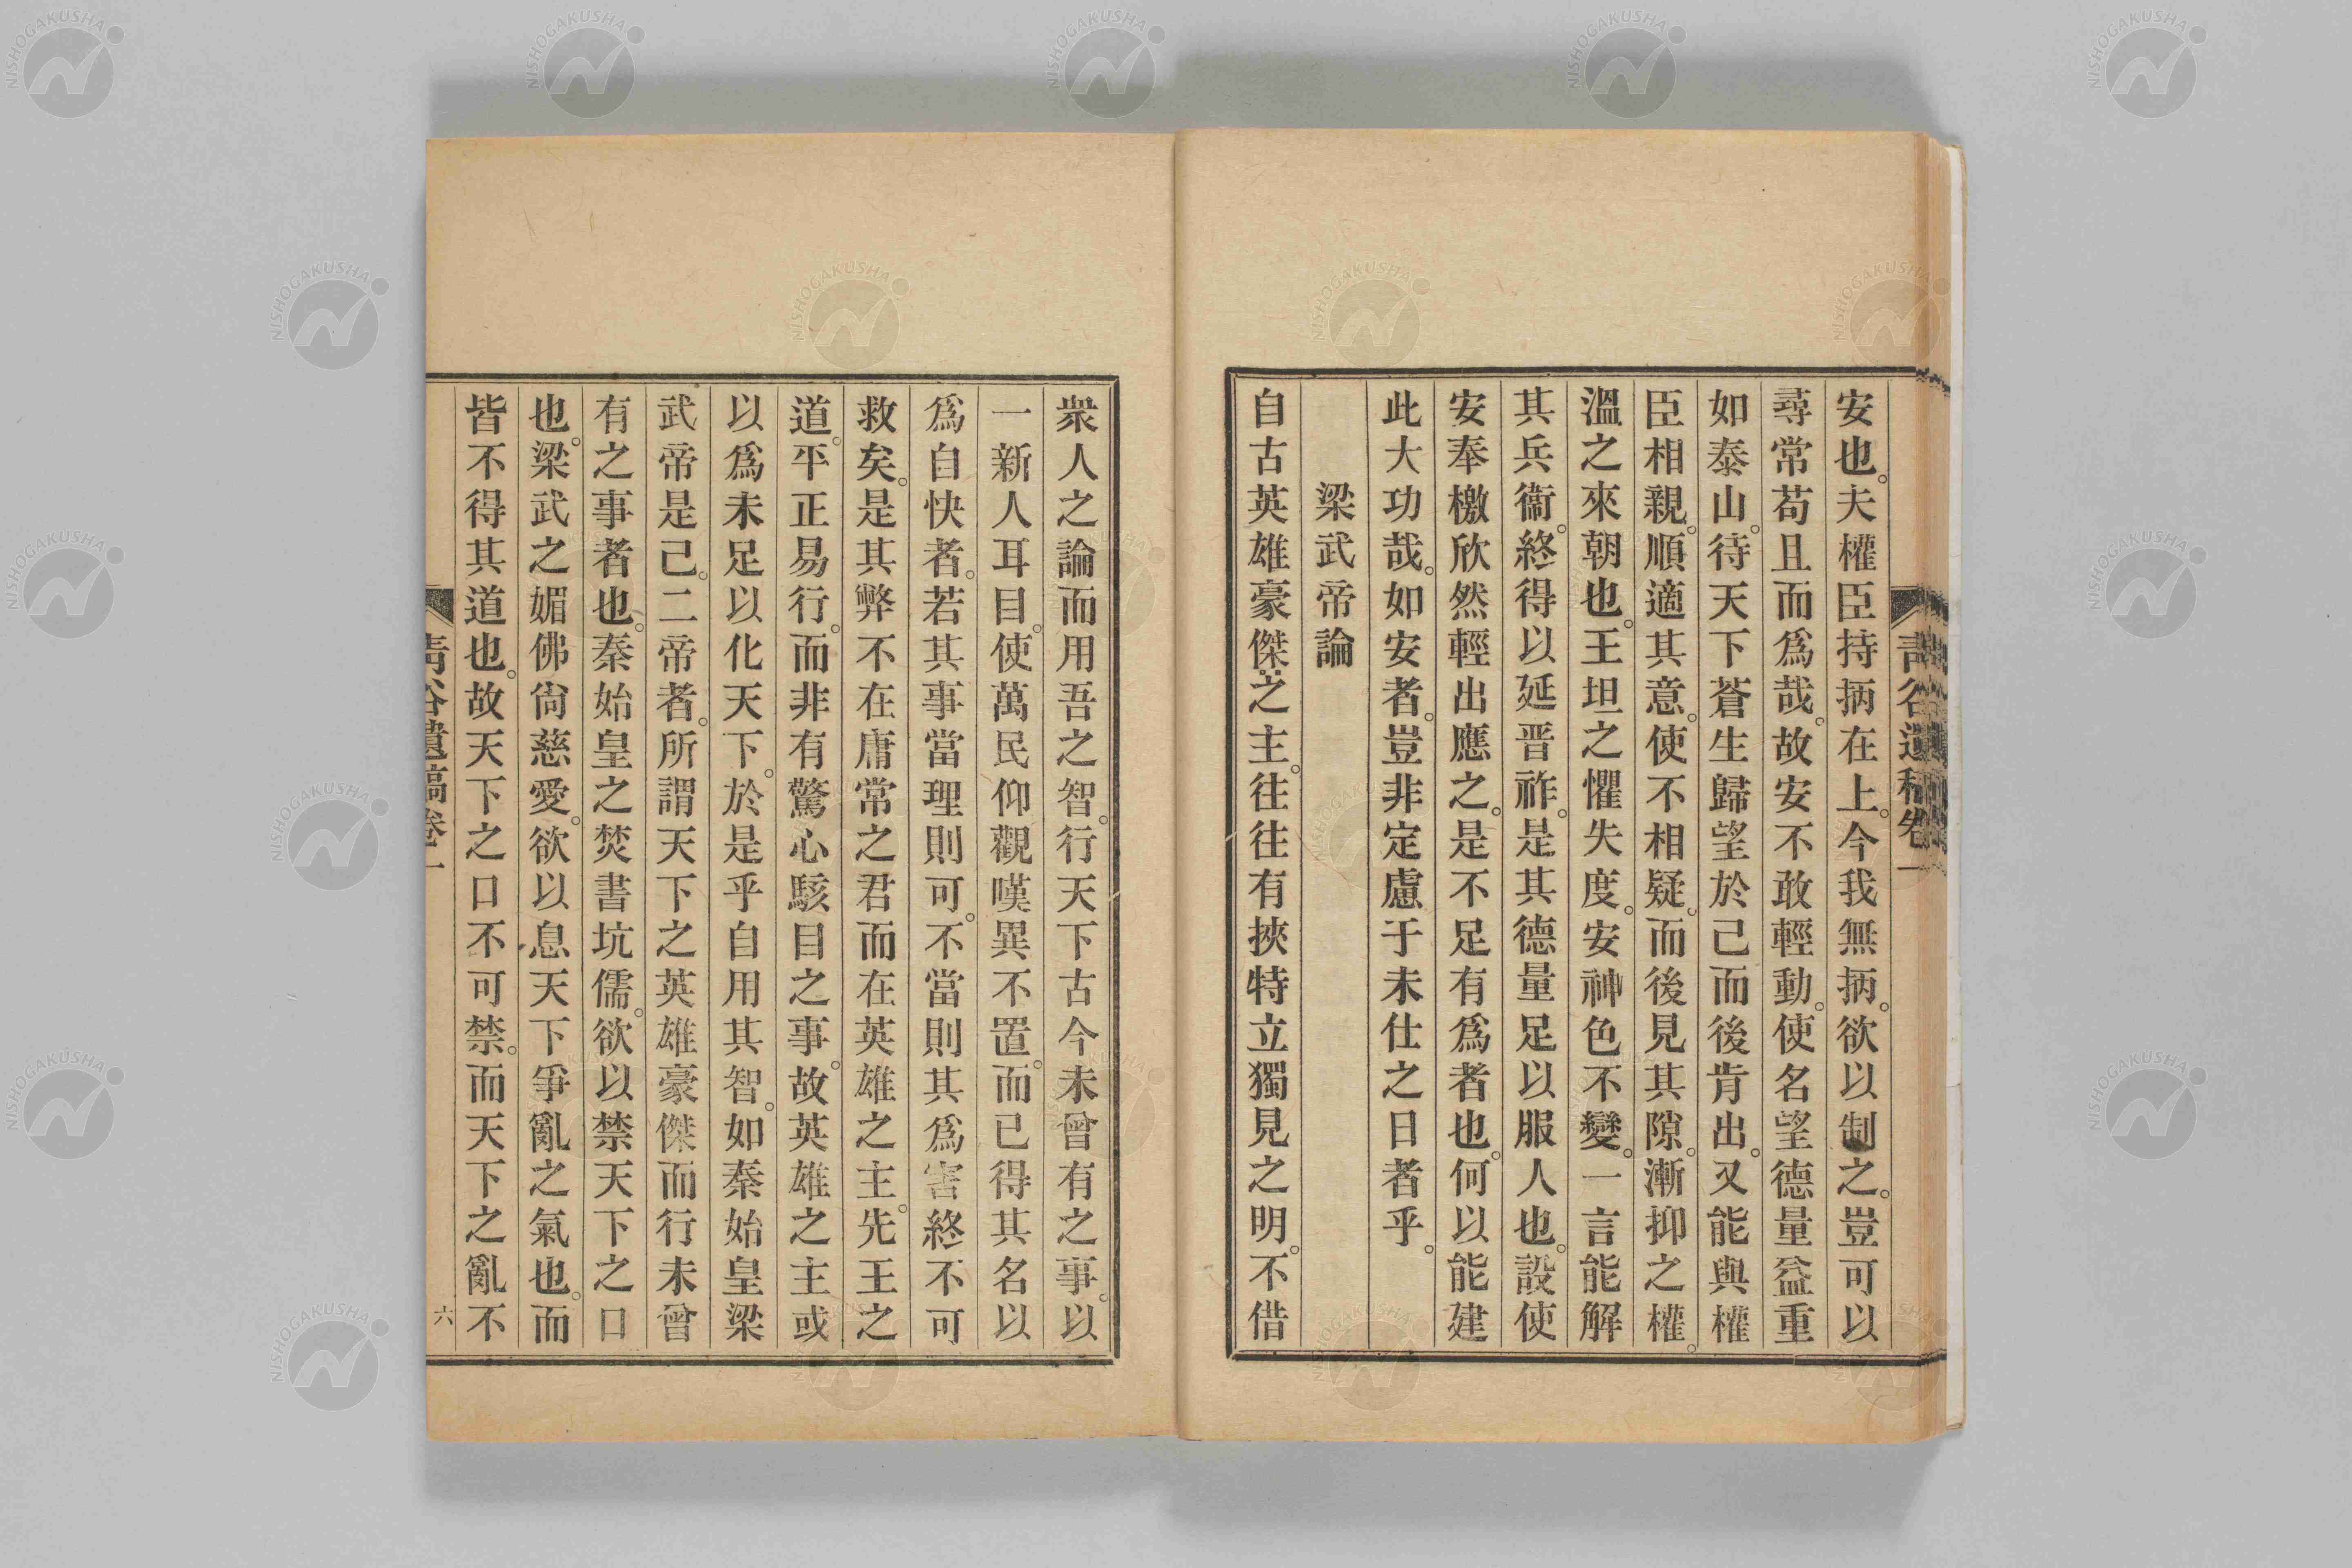 安也。夫權臣持抦在上。今我無抦。欲以制之。豈可以
尋常苟且而爲哉。故安不敢輕動。使名望德量益重
如泰山。待天下蒼生歸望於己而後肯出。又能與權
臣相親。順適其意。使不相疑。而後見其隙。漸抑之權。
溫之來朝也。王坦之懼失度。安神色不變。一言能解
其兵衞。終得以延晋祚。是其德量足以服人也。設使
安奉檄欣然輕出應之。是不足有爲者也。何以能建
此大功哉。如安者。豈非定慮于未仕之日者乎。
梁武帝論
自古英雄豪傑之主。往往有挾特立獨見之明。不借
衆人之論而用吾之智。行天下古今未曾有之事。以
一新人耳目。使萬民仰觀嘆異不置。而已得其名以
爲自快者。若其事當理則可。不當則其爲害終不可
救矣。是其弊不在庸常之君而在英雄之主。先王之
道。平正易行。而非有驚心駭目之事。故英雄之主或
以爲未足以化天下。於是乎自用其智。如秦始皇梁
武帝是已。二帝者。所謂天下之英雄豪傑而行未曾
有之事者也。秦始皇之焚書坑儒。欲以禁天下之口
也。梁武之媚佛尙慈愛。欲以息天下爭亂之氣也。而
皆不得其道也。故天下之口不可禁。而天下之亂不
靑谷遺稿卷一
六
NISHOGAKUSHA